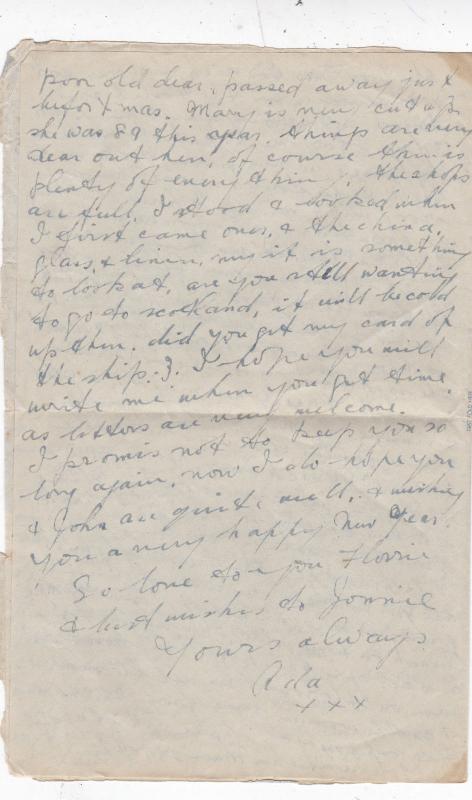 poor old dear, passed away just
befor Xmas. Mary is very cut up
she was 89 this year. things are very
dear out her, of course ther is
plenty of every thin, the shops
are full, I stood & looked when
I first came over, & the china,
glass, & linen, my it is something
to look at, are you still wanting
to go to scotland, it will be cold
up ther. did you get my card of
the ship. I. I hope you will
write me when you get time.
as letters are very welcome.
I promis not to keep you so
long again, now I do hope you
& John are quite well, & wishing
you a very happy New Year.
So love to you Florrie
& best wishes to Jonnie
Yours always
Ada
x x x